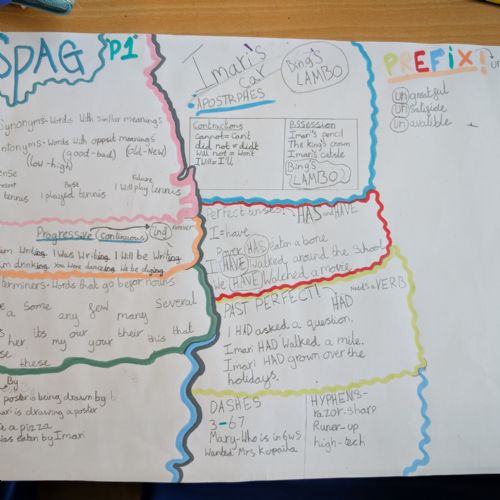 SPAG P1
Synonyms-Words with similar meanings
ntonyms-Words with opposit meanings
(low-high) (good-bad) (old-New)
Future
tennis I played tennis I will play tennis
Progressive (continuous) ing
I was Writing I will be Writing
You were dancing
erminers-Words that go befor nouns
a some any few many Several
her its our their this that
my your
these
By
poster is being drawn by
mari is drawing a poster
a pizza
was eaten by Imari
Imari's car
APOSTRPHES
Bing's LAMBO
Contractions
cannot=can't
did not = didt
will not = won't
I will = I'll
Assession
Imari's pencil
The king's crown
Imari's
Bing's
LAMBO
Perfect tenses! HAS and HAVE
I = have
HAS eaten a bone
I HAVE walked around the School
We HAVE Watched a movie
PAST PERFECT! HAD needs a VERB
I HAD asked a question.
Imari HAD Walked a mile.
Imari HAD grown over the
holidays.
DASHES
3-67
Mary-Who is in 6WS
Wanted Mrs
HYPHENS-
razor-sharp
Runer-up
high-tech
PREFIX! un
ungreatful
unsuitible
unavalible